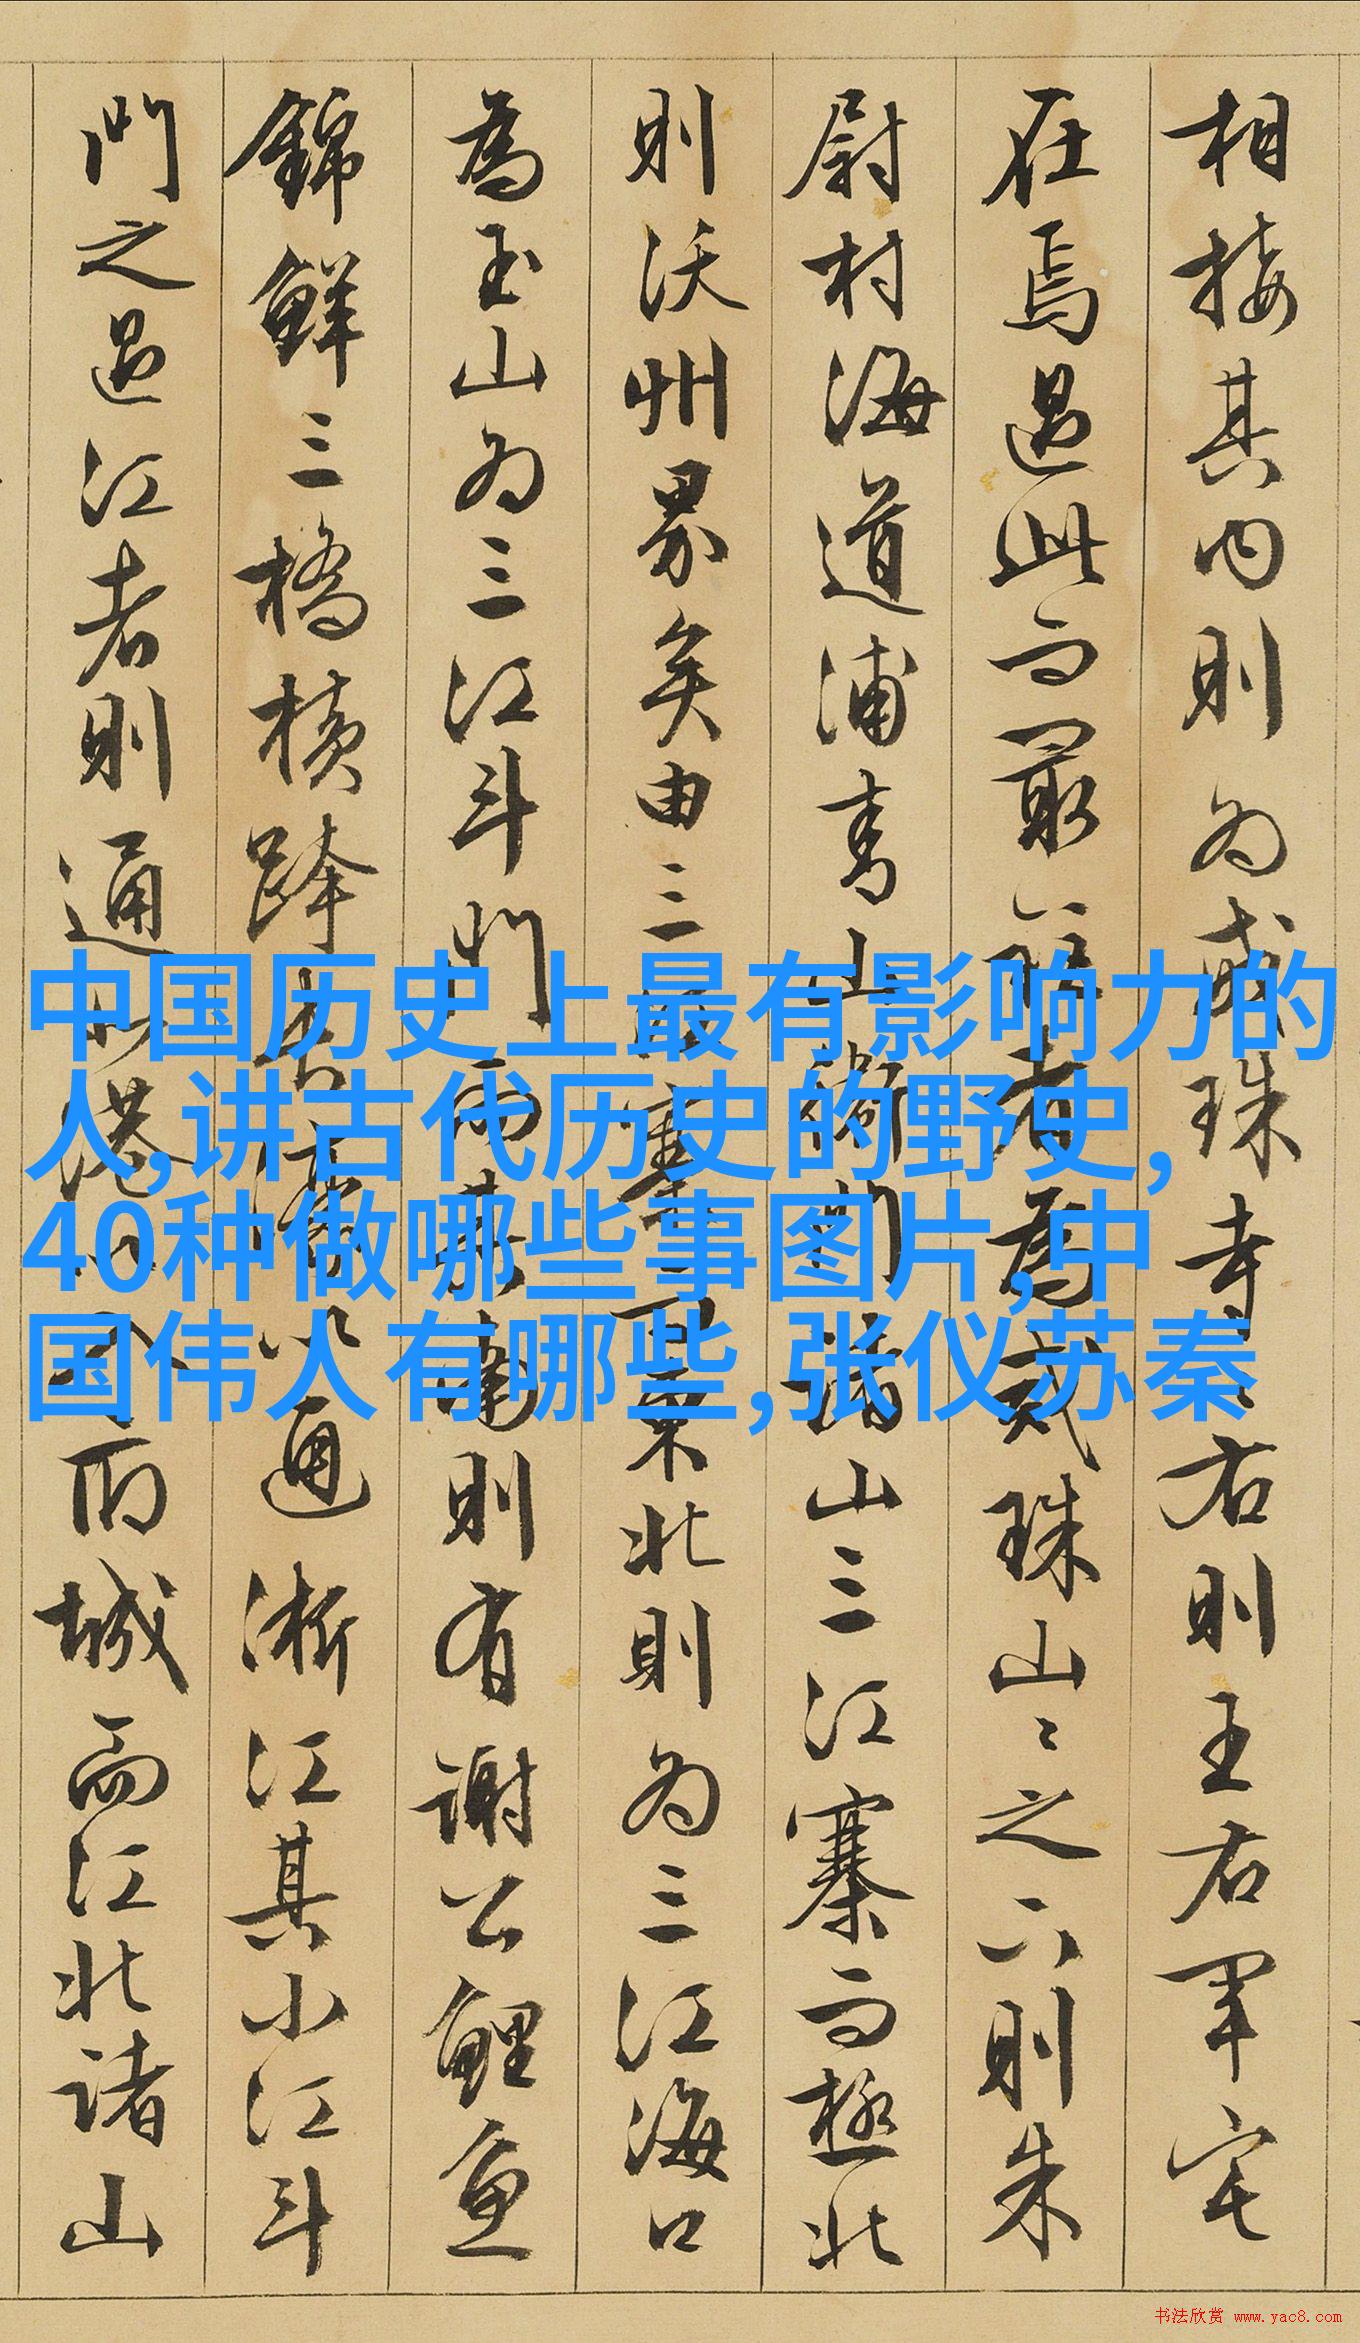 相接其内則为戒珠寺、右則王右軍宅
在焉過此而最
者為戒珠山、之六則朱
尉村海道浦
山
門諸山三江寨而極北
則沃州界矣由三
北則为三江海口
為玉山为三江斗門
則有謝公鯉魚
錦鮮三橋横跨
通浙江其小江斗
門之過江者則通
而城而江北諸山
中国历史上最有影响力的
人,讲古代历史的野史,
40种做哪些事图片,中
国伟人有哪些,张仪苏秦
书法欣赏 www.yac8.com